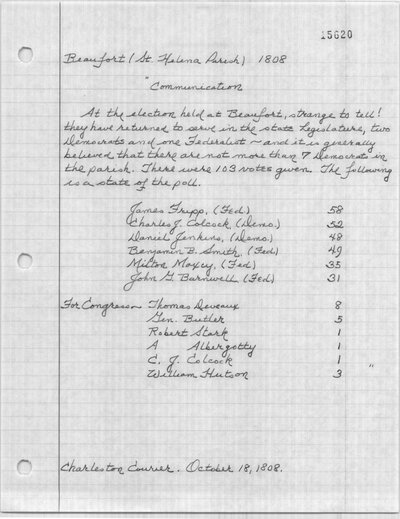 15620
Beaufort (St. Helena Parish) 1808
"Communication
At the election held at Beaufort, strange to tell!
they have returned to serve in the state Legislature, two
Democrats and one Federalist ~ and it is generally
believed that there are not more than 7 Democrats in
the parish. There were 103 votes given. The following
is a state of the poll.
James Fripp, (Fed.) 58
Charles J. Colcock, (Demo.) 52
Daniel Jenkins, (Demo.) 48
Benjamin B. Smith, (Fed) 49
Milton Maxcy, (Fed) 35
John G. Barnwell, (Fed) 31
For Congress Thomas Deveaux 8
Gen. Butler 5
Robert Stark 1
A Albergotty 1
C. J. Colcock 1
William Hutson 3 "
Charleston Courier. October 18, 1808.